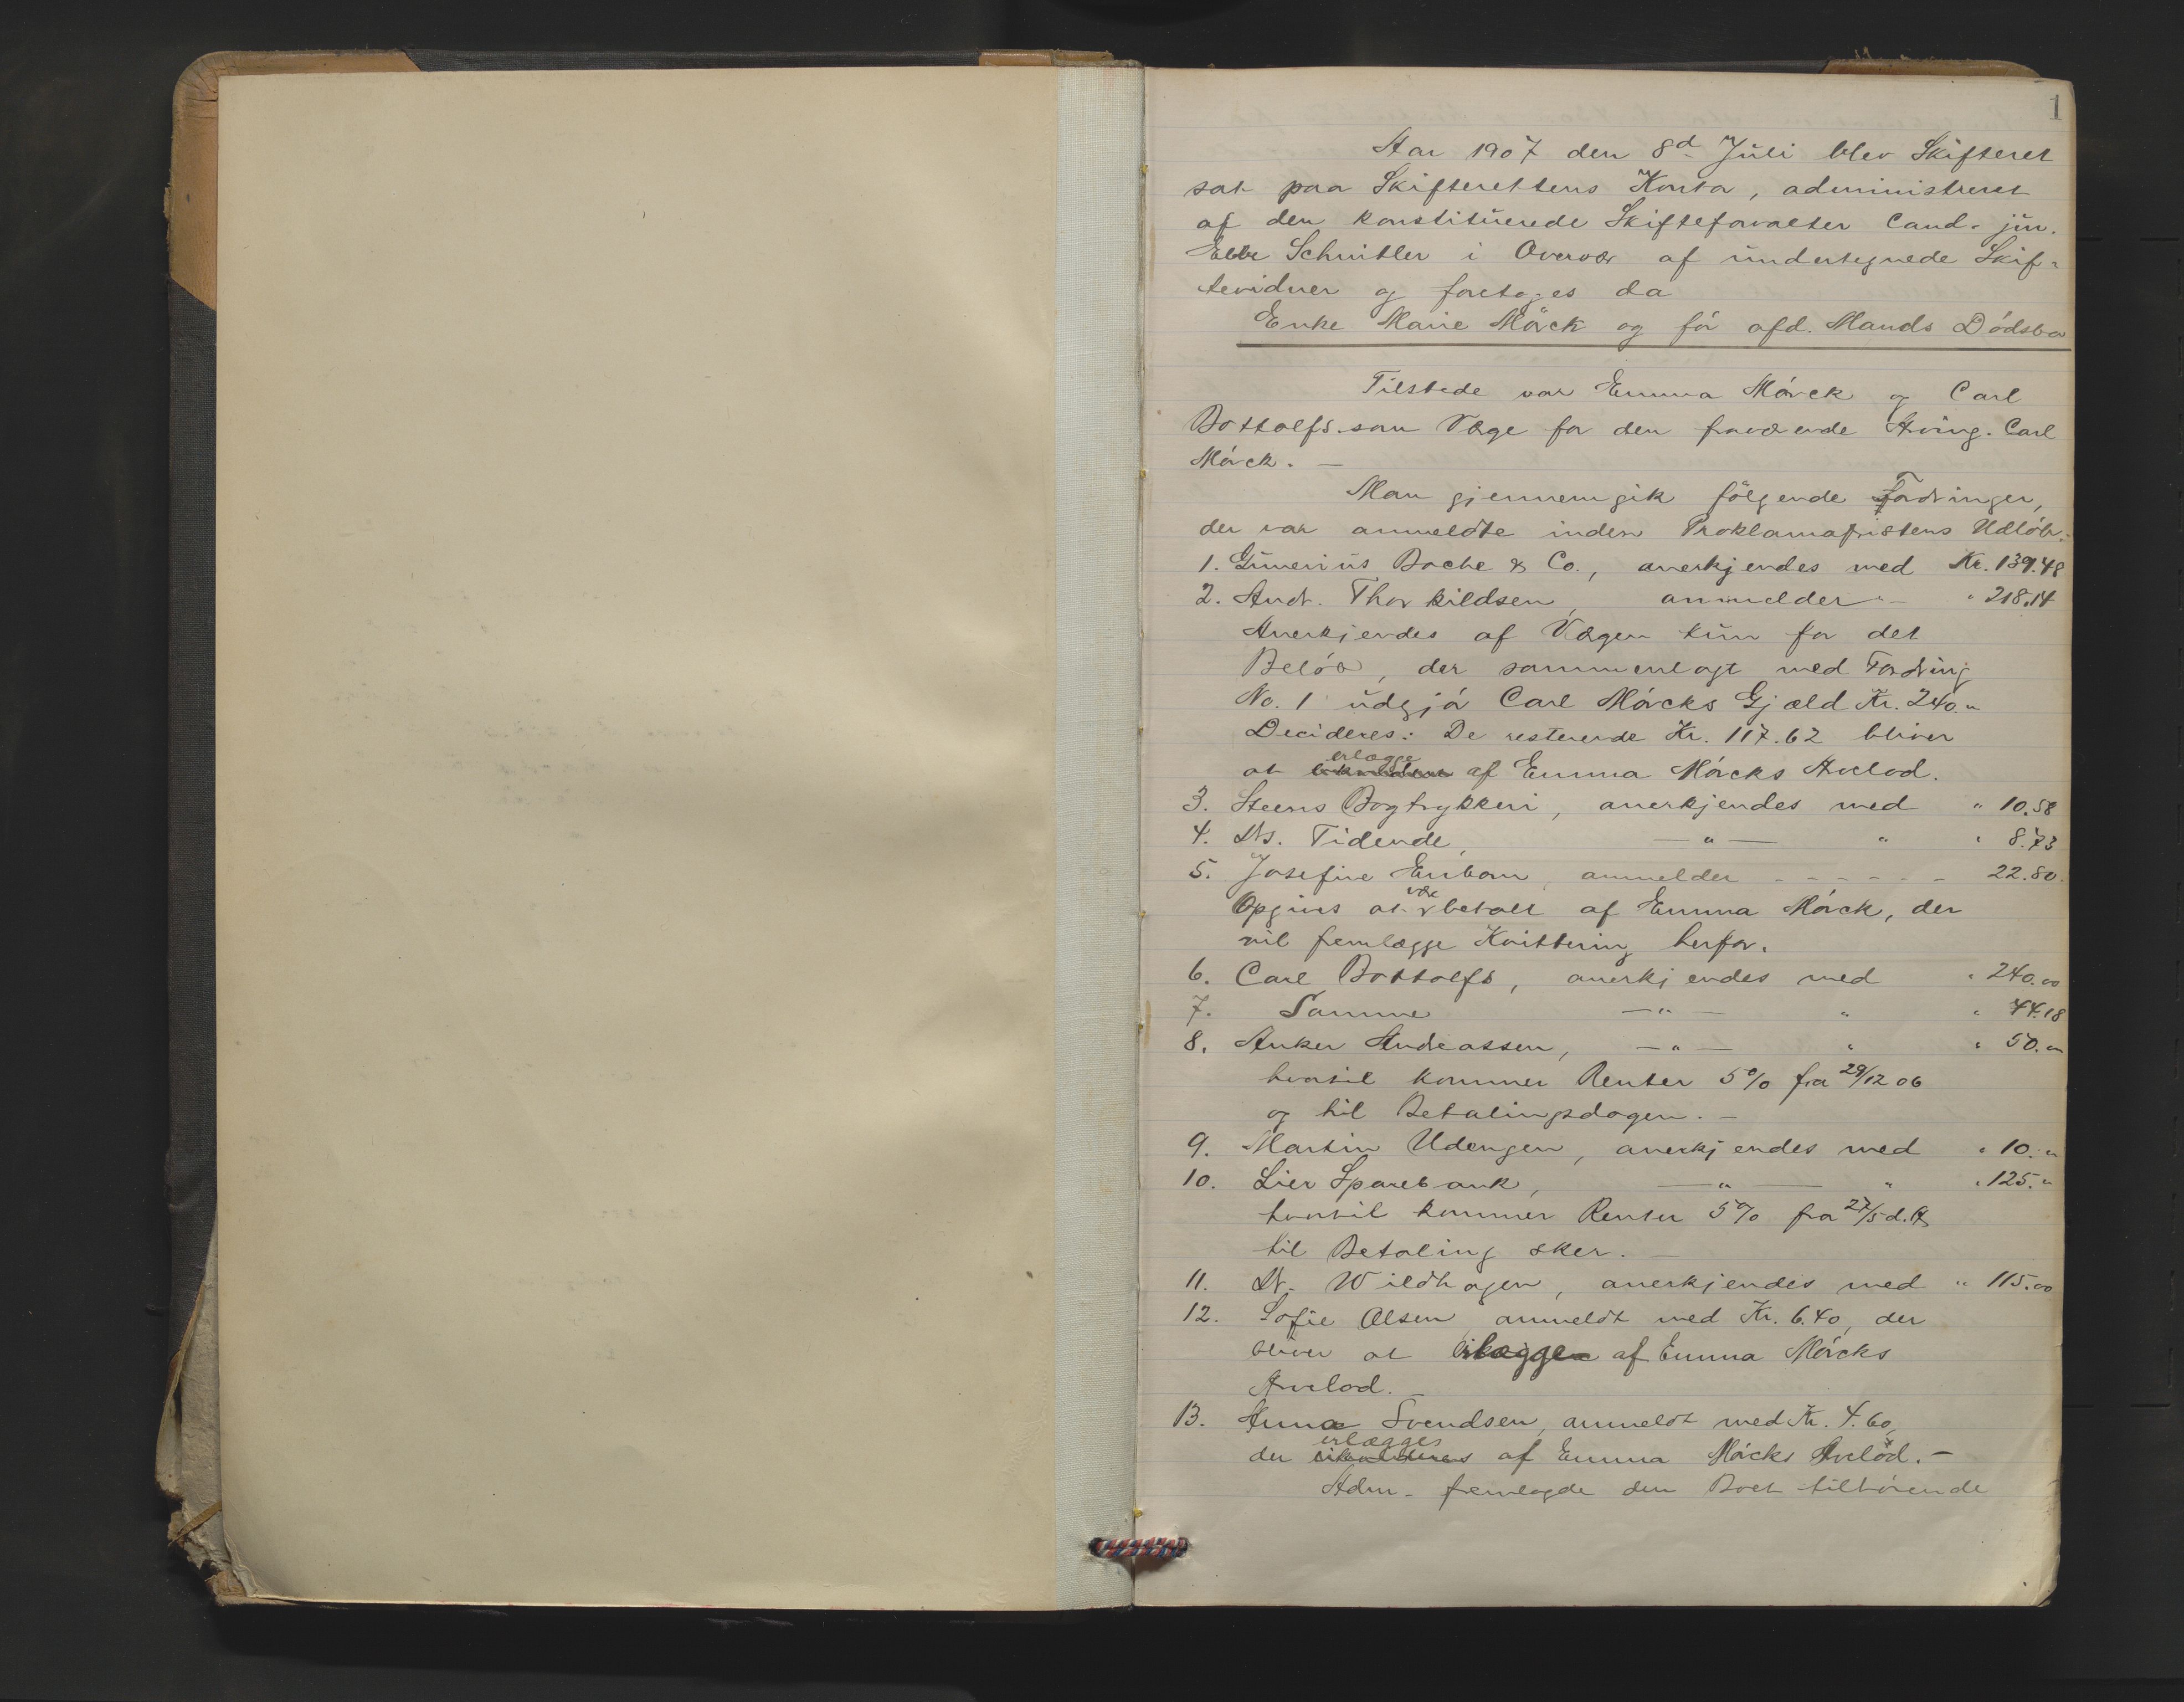 1
Aar 1907 den 8d Juli blev Skifteret
sat paa Skifterettens Kontor, administreret
af den konstituerede Skifteforvalter Cand. jur.
Ebbe Schnitler i Overvær af undertegnede Skif-
tevidner og foretoges da
Enke Marie Mörck og før afd. Mands Dödsbo
Tilstede var Emma Mörck og Carl
Bottolfs som Værge for den fraværende Arving. Carl
Mörck. —
Man gjennemgik fölgende Fordringer,
der var anmeldte inden Proklamafristens Udlöb:
1. Gunerius Boche & Co., anerkjendes med Kr. 139.48
2. Andr. Thorkildsen, anmelder " — " 218.14
Anerkjendes af Værgen kun for det
Belöb, der sammenlagt med Fordring
No. 1 udgjör Carl Mörcks Gjæld Kr. 240."
Decideres: De resterende Kr. 117.62 bliver
at erlægge af Emma Mörcks Arvelod.
3. Steens Bogtrykkeri, anerkjendes med " 10.58
4. Drs. Tidende, — " — " " 8.73
5. Josefine Enbom, anmelder - - - - - - 22.80.
Opgives at være betalt af Emma Mörck, der
vil fremlægge Kvittering herfor.
6. Carl Bottolfs, anerkjendes med " 240.00
7. Samme — " — " " 44.18
8. Anker Andreassen, — " — " " 50.—
hvortil kommer Renter 5% fra 29/12 06
og til Betalingsdagen. —
9. Martin Udengen, anerkjendes med " 10."
10. Lier Sparebank, — " — " " 125."
hvortil kommer Renter 5% fra 27/5 d. A.
til Betaling sker. —
11. Dr. Wildhagen, anerkjendes med " 115.00
12. Sofie Olsen, anmeldt med Kr. 6.40, der
bliver at erlægge af Emma Mörcks
Arvelod. —
13. Anna Svendsen, anmeldt med Kr. 4.60,
der erlægges af Emma Mörcks Arvelod. —
Adm. fremlagde den Boet tilhörende